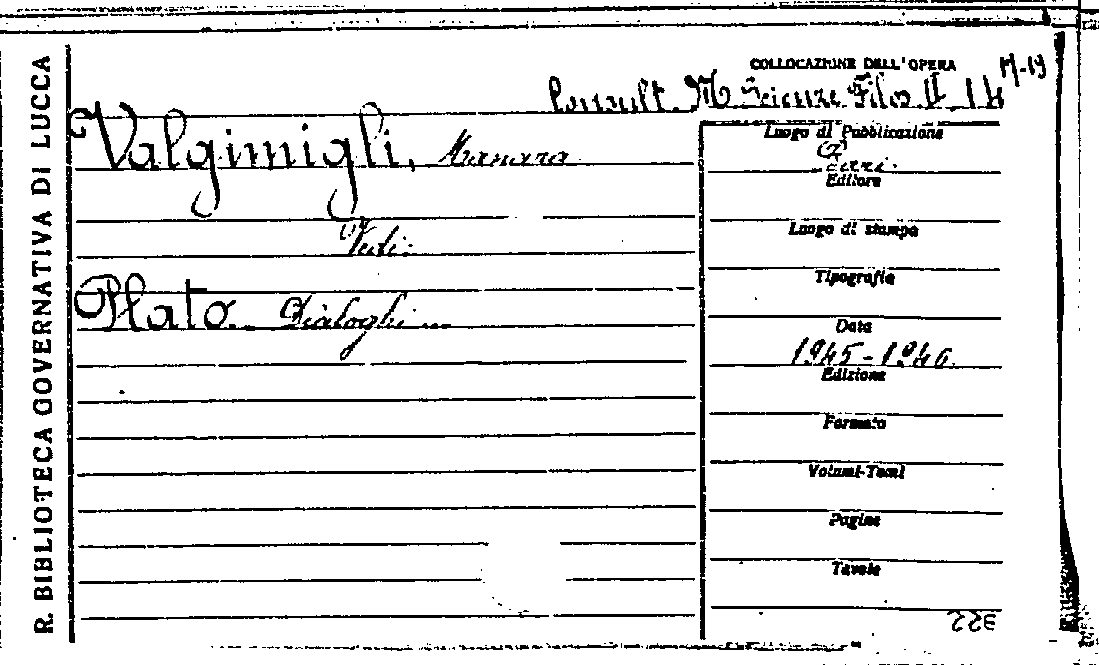 R. BIBLIOTECA GOVERNATIVA DI LUCCA
COLLOCAZIONE DELL'OPERA
Consult. M Scienze Filos II 14 17-19
Valgimigli, Manara
Vedi:
Plato. Dialoghi
Luogo di Pubblicazione
Bari.
Editore
Luogo di stampa
Tipografia
Data
1945-1946.
Edizione
Formato
Volumi-Tomi
Pagine
Tavole